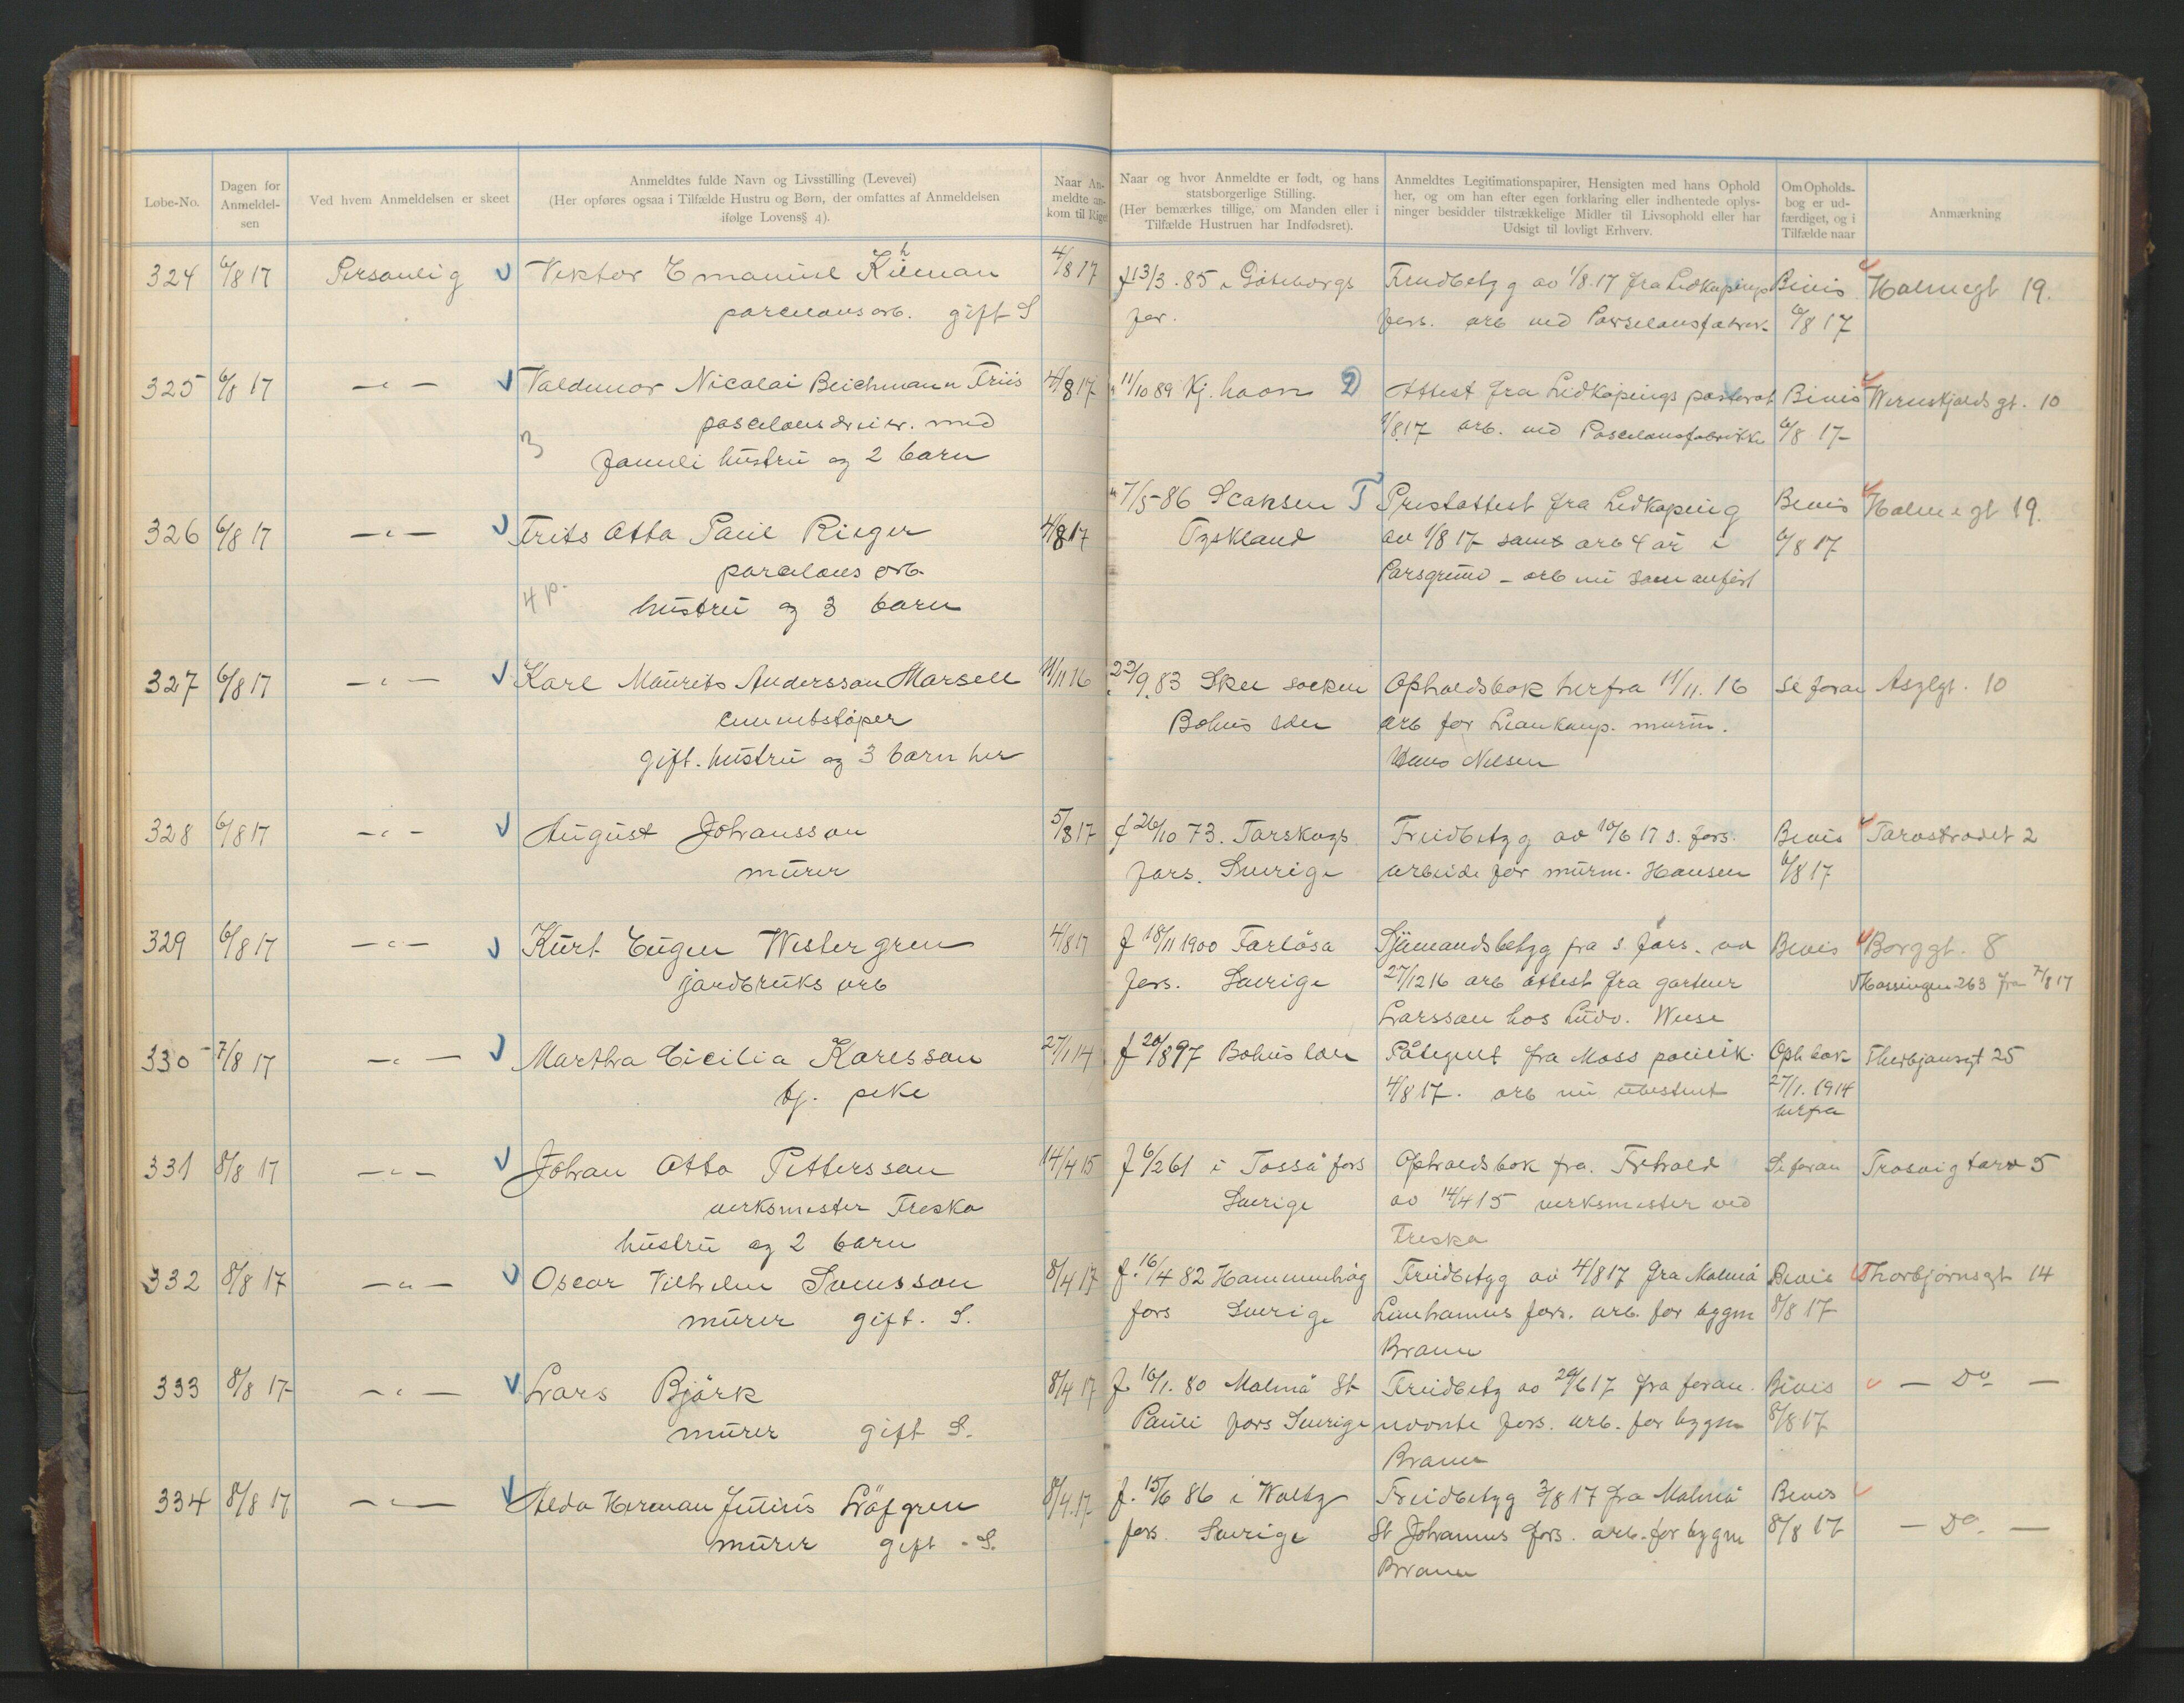 Løbe-No.
Dagen for Anmeldel- sen
Ved hvem Anmeldelsen er skeet
Anmeldtes fulde Navn og Livsstilling (Levevei)
(Her opføres ogsaa i Tilfælde Hustru og Børn, der omfattes af Anmeldelsen
ifølge Lovens § 4).
Naar An-
meldte an-
kom til Rige
Naar og hvor Anmeldte er født, og hans
statsborgerlige Stilling.
(Her bemærkes tillige, om Manden eller i
Tilfælde Hustruen har Indfødsret).
Anmeldtes Legitimationspapirer, Hensigten med hans Ophold
her, og om han efter egen forklaring eller indhentede oplys-
ninger besidder tilstrækkelige Midler til Livsophold eller har
Udsigt til lovligt Erhverv.
Om Opholds-
bog er ud-
færdiget, og i
Tilfælde naar
Anmærkning
324 6/8 17 Personlig Viktor Emanuel 4/8 17 f 13/3 . 85 i Göteborgs Freidbetyg av 1/8.17 fra Lidkøpings Bevis Holmegt 19.
porcelansarb. gift S for. fors. arb ved Porselansfabrik 6/8 17
325 6/8 17 — " — Valdemar Nicolai Beichmann Friis 4/8 17 " 11/10 89 Kj. havn 2 Attest fra Lidkøpings pastorat Bevis Wernskjolds gt. 10
poscelansdreier. med 1/8 17 arb. ved Poscelansfabrikke 6/8 17
3 famili hustru og 2 barn
326 6/8 17 — " — Frits Otto Paul Rieger 4/8 17 " 7/5 - 86 Scaksen T Prestattest fra Lidkøping Bevis Holmegt 19.
porcelans arb. Tyskland av 1/8 17 samt arb 4 år i 6/8 17
4 p. hustru og 3 barn Porsgrund - arb nu som anført
327 6/8 17 — " — Karl Mauritz Andersson Marsell 11/11 16 22/9 83 Skee socken Opholdsbok herfra 11/11. 16 Se foran Asylgt. 10
cementstøper Bohus län arb for murm.
gift. hustru og 3 barn her Hans Nilsen
328 6/8 17 — " — August Johansson 5/8 17 f 26/10 73. Torskogs Freidbetyg av 10/6 17 s. fors. Bevis Farvestrædet 2
murer fors. Sverige arbeide for murm. Hansen 6/8 17
329 6/8 17 — " — Kurt Eugen Westergren 4/8 17 f 18/11 1900 Farlösa Sjömandsbetyg fra s. förs. av Bevis Borggt. 8
jordbruks arb förs. Sverige 27/12 16 arb attest fra gartner Mossingen 263 fra 7/8 17
Larsson hos Ludv. Wiese
330 7/8 17 — " — Martha Cicilia Karlsson 27/1 14 f 20/8 97 Bohus län Påtegnet fra Moss politik. Oph bok Thorbjønsgt 25
tj. pike 4/8 17. arb nu ubestemt 27/1. 1914
herfra
331 8/8 17 — " — Johan Otto Pettersson 14/4 15 f 6/2 61 i Tosså fors Opholdsbok fra. Frhald Se foran Trosvigtorv 5
verksmester Freska Sverige av 14/4 15 verksmester ved
hustru og 2 barn Freska
332 8/8 17 — " — Oscar Vilhelm Svensson 8/4 17 f. 16/4 82 Hammenhög Freidbetyg av 4/8 17 fra Malmö Bevis Thorbjørnsgt 14
murer gift. S. fors Sverige Limhamns fors. arb. for bygm 8/8 17
Braun
333 8/8 17 — " — Lars Björk 8/4 17 f. 16/1. 80 Malmö St Freidbetg av 29/6 17 fra foran. Bevis — Do —
murer gift S. Pauli fors Sverige nevnte fors. arb. for bygm 8/8 17
Braun
334 8/8 17 — " — Aldo Herman Julius Löfgren 8/4.17 f. 15/6 86 i Freidbetyg 3/8 17 fra Malmö Bevis
murer gift . S. fors. Sverige St Johannes fors. arb. for bygm 8/8 17 — Do. —
Braun